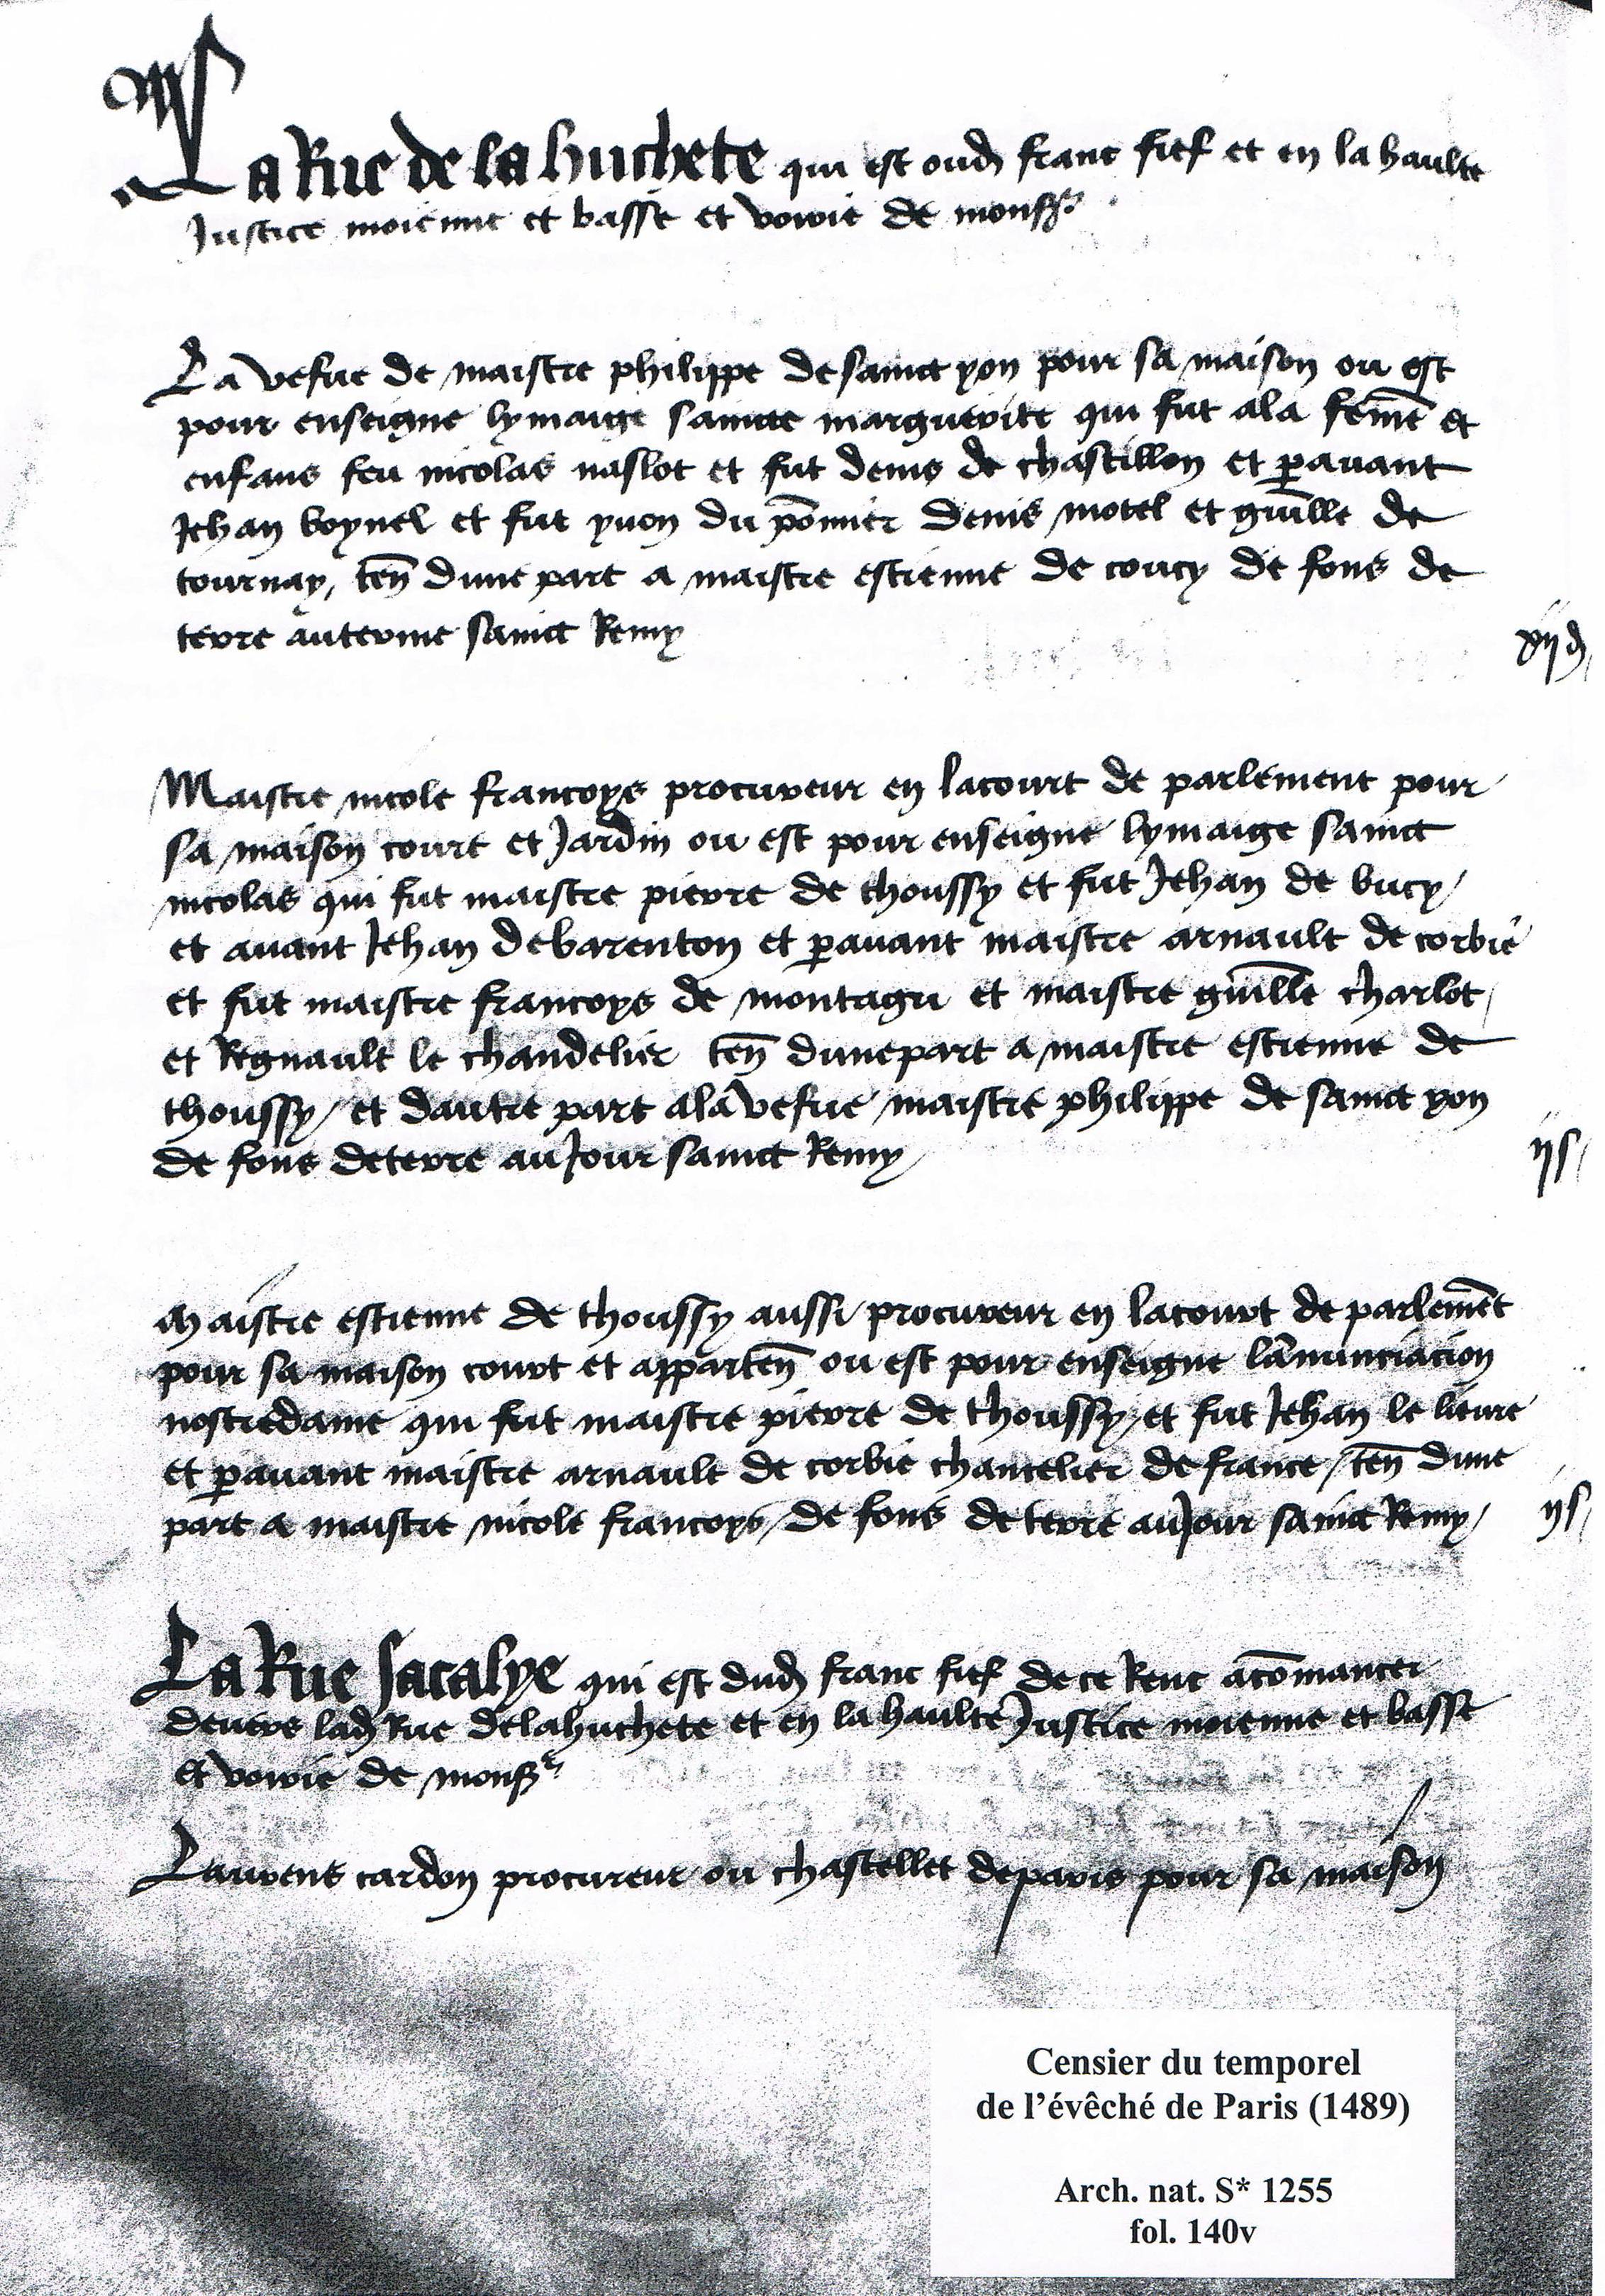 La Rue de la huchete qui est oud franc fief et en la haulte
Justice moienne et basse et voirie de monsr
La vefue de maistre philippe de sainct yon pour sa maison ou est
pour enseigne lymaige saincte marguerite qui fut ala feme et
enfans feu nicolas naslot et fut denis de chastillon et pauant
Jehan boynel et fut yuon du pomier denis motel et guille de
tournay, ten dune part a maistre estienne de coucy de fons de
terre auterme sainct Remy
xij d
Maistre nicole francoys procureur en lacourt de parlement pour
sa maison court et Jardin ou est pour enseigne lymaige sainct
nicolas qui fut maistre pierre de thoussy et fut Jehan de bucy
et auant Jehan debarenton et pauant maistre arnault de corbie
et fut maistre francoys de montagu et maistre guille charlot
et Regnault le chandelier ten dune part a maistre estienne de
thoussy / et dautre part ala vefue maistre philippe de sainct yon
de fons deterre au Jour sainct Remy
ij s
Maistre estienne de thoussy aussi procureur en lacourt de parlemet
pour sa maison court et apparten ou est pour enseigne lanunciacion
nostredame qui fut maistre pierre de thoussy / et fut Jehan le lieure
et pauant maistre arnault de corbie chancelier de france / ten dune
part a maistre nicole francoys / de fons de terre au Jour sainct Remy /
ij s
La Rue sacalye qui est dud franc fief de ce Renc acomancer
deuers lad Rue delahuchete et en la haulte Justice moienne et basse
et voirie de monsr
Laurens cardon procureur ou chastellet deparis pour sa maison
Censier du temporel
de l'évêché de Paris (1489)
Arch. nat. S* 1255
fol. 140v